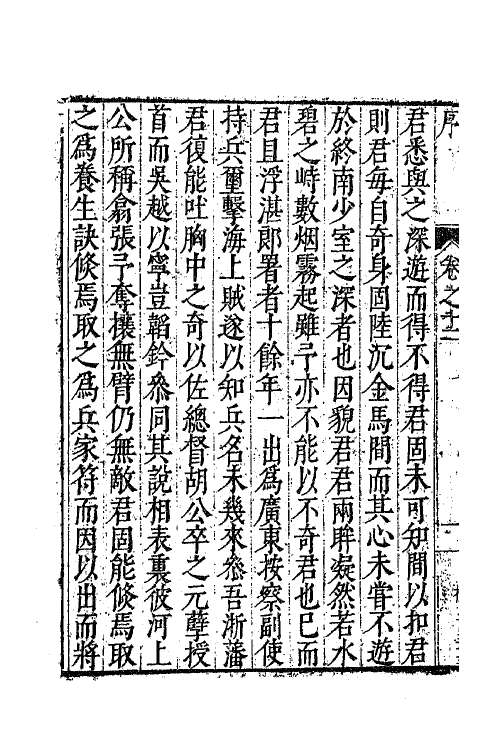 序 卷之十二
君悉與之深遊而得不得君固未可知間以扣君
則君每自奇身固陸沉金馬間而其心未嘗不遊
於終南少室之深者也因貌君君兩眸凝然若水
碧之峙數烟霧起雖予亦不能以不奇君也已而
君且浮湛郎署者十餘年一出爲廣東按察副使
持兵璽擊海上賊遂以知兵名未幾來叅吾浙藩
君復能吐胸中之奇以佐總督胡公卒之元孽授
首而吳越以寧豈韜鈐叅同其說相表裏彼河上
公所稱翕張予奪攘無臂仍無敵君固能倏焉取
之爲養生訣倏焉取之爲兵家符而因以出而將